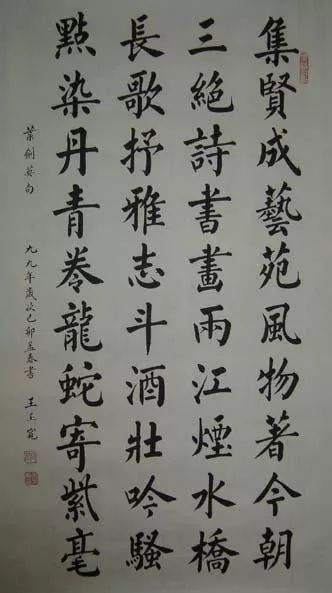 集賢成藝苑風物著今朝
三絕詩書畫兩江煙水橋
長歌抒雅志斗酒壯吟騷
點染丹青卷龍蛇寄紫毫
葉劍英句
九九年歲次己卯孟春書
王玉寬